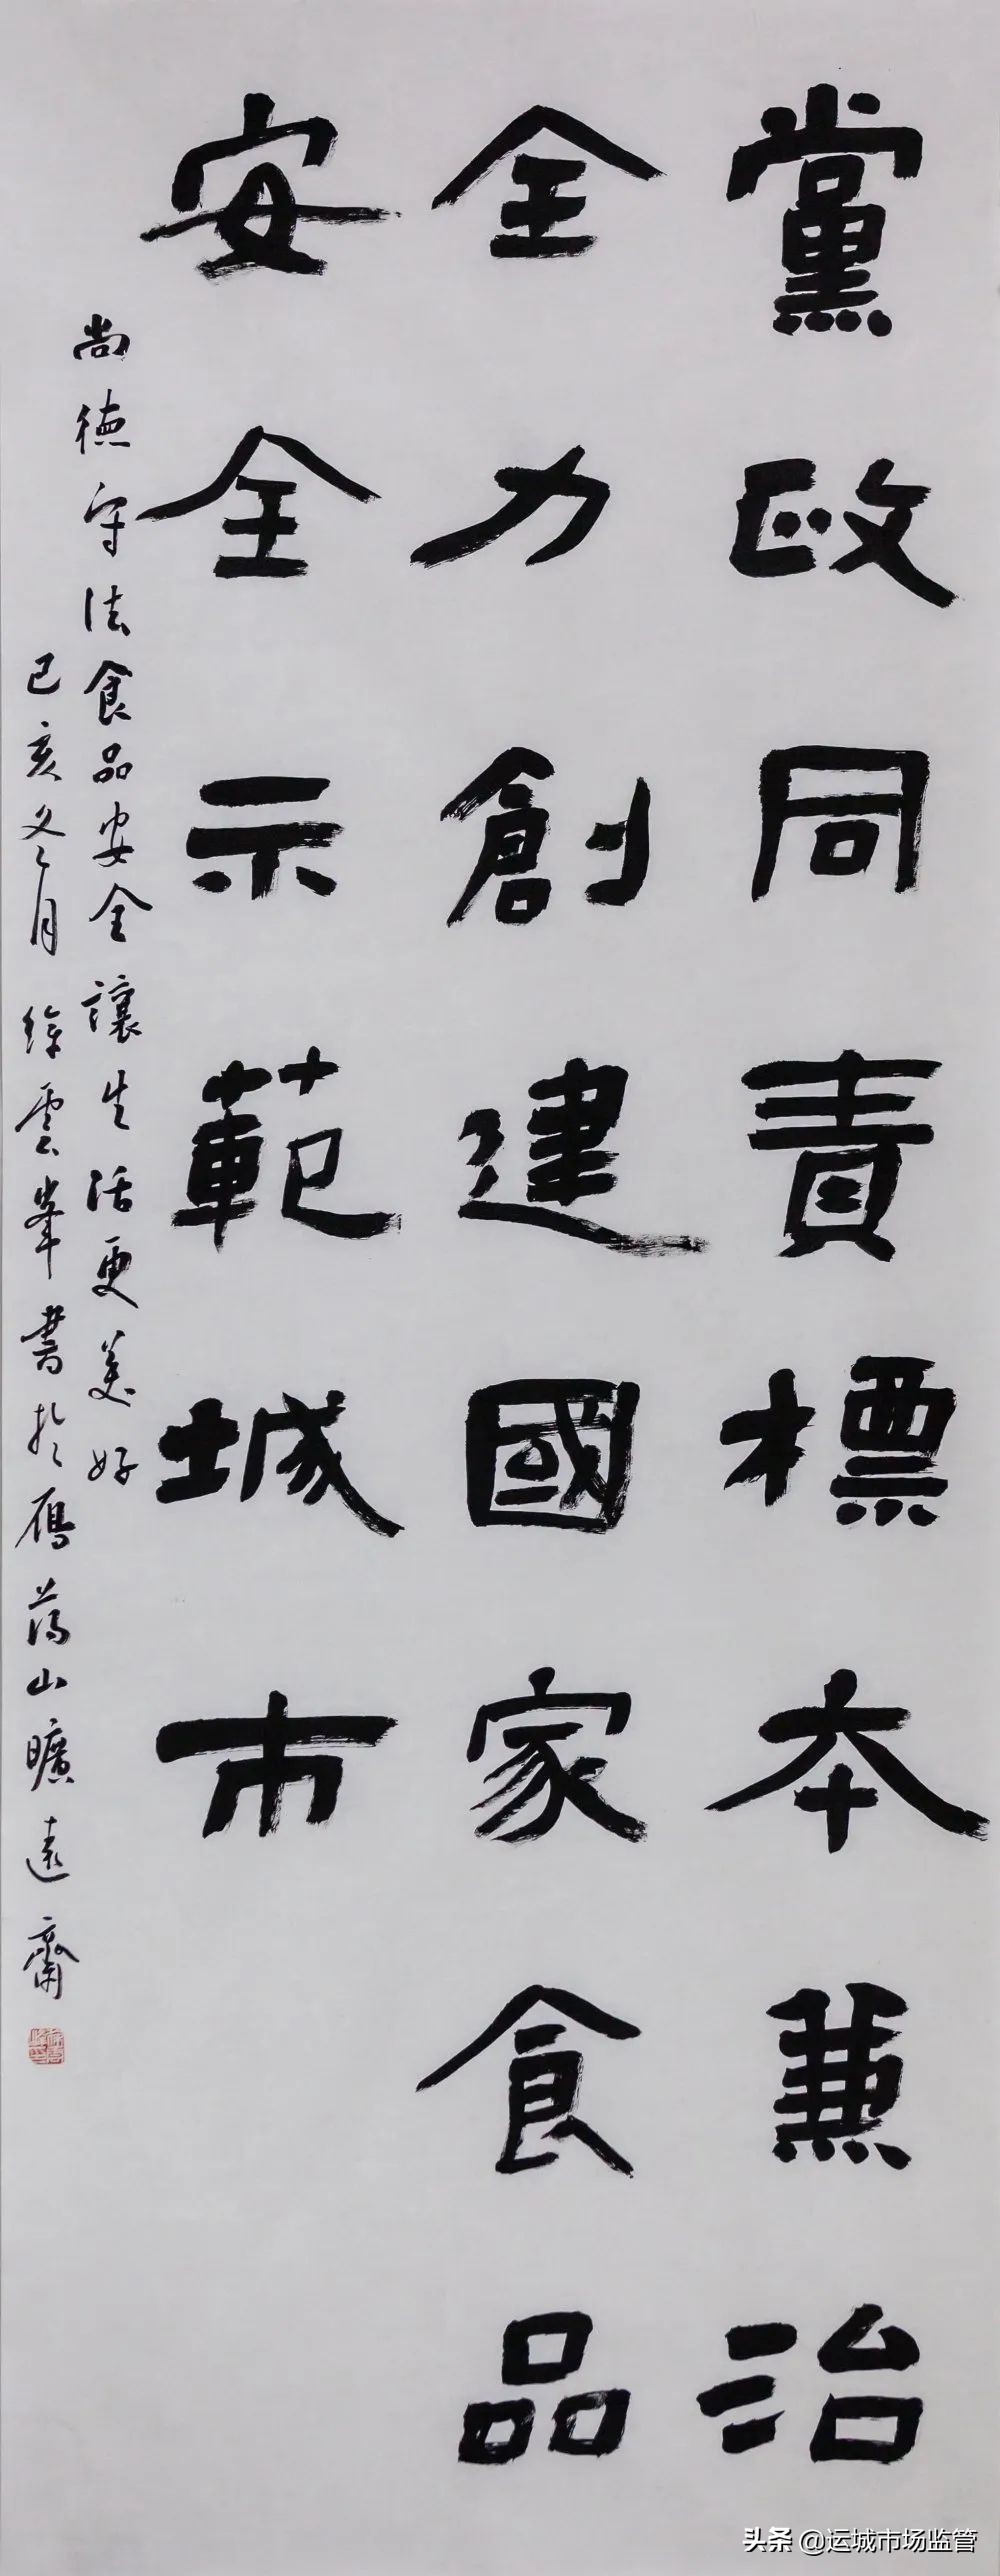 黨政同責標本兼治
全力創建國家食品
安全示範城市
尚德守法食品安全讓生活更美好
己亥冬月徐雲峯書於雁蕩山曠遠齋
头条 @运城市场监管